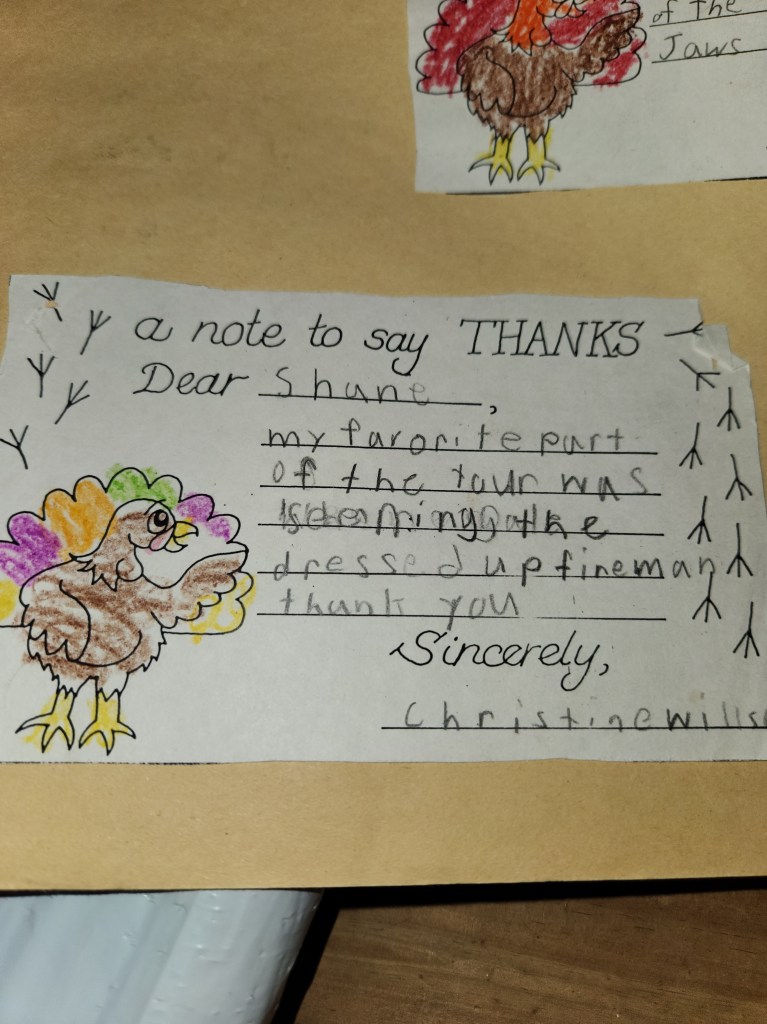 of the
Jaws
a note to say THANKS
Dear Shane,
my favorite part
of the tour was
the
dressed up fineman
thank you
Sincerely,
Christine wills